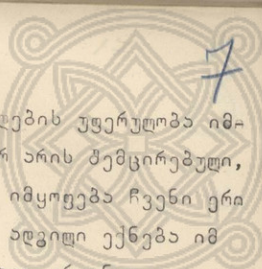 7
ლების უფერულობა იმ-
რ არის შემცირებული,
იმყოფება ჩვენი ერი
ადგილი ექნება იმ